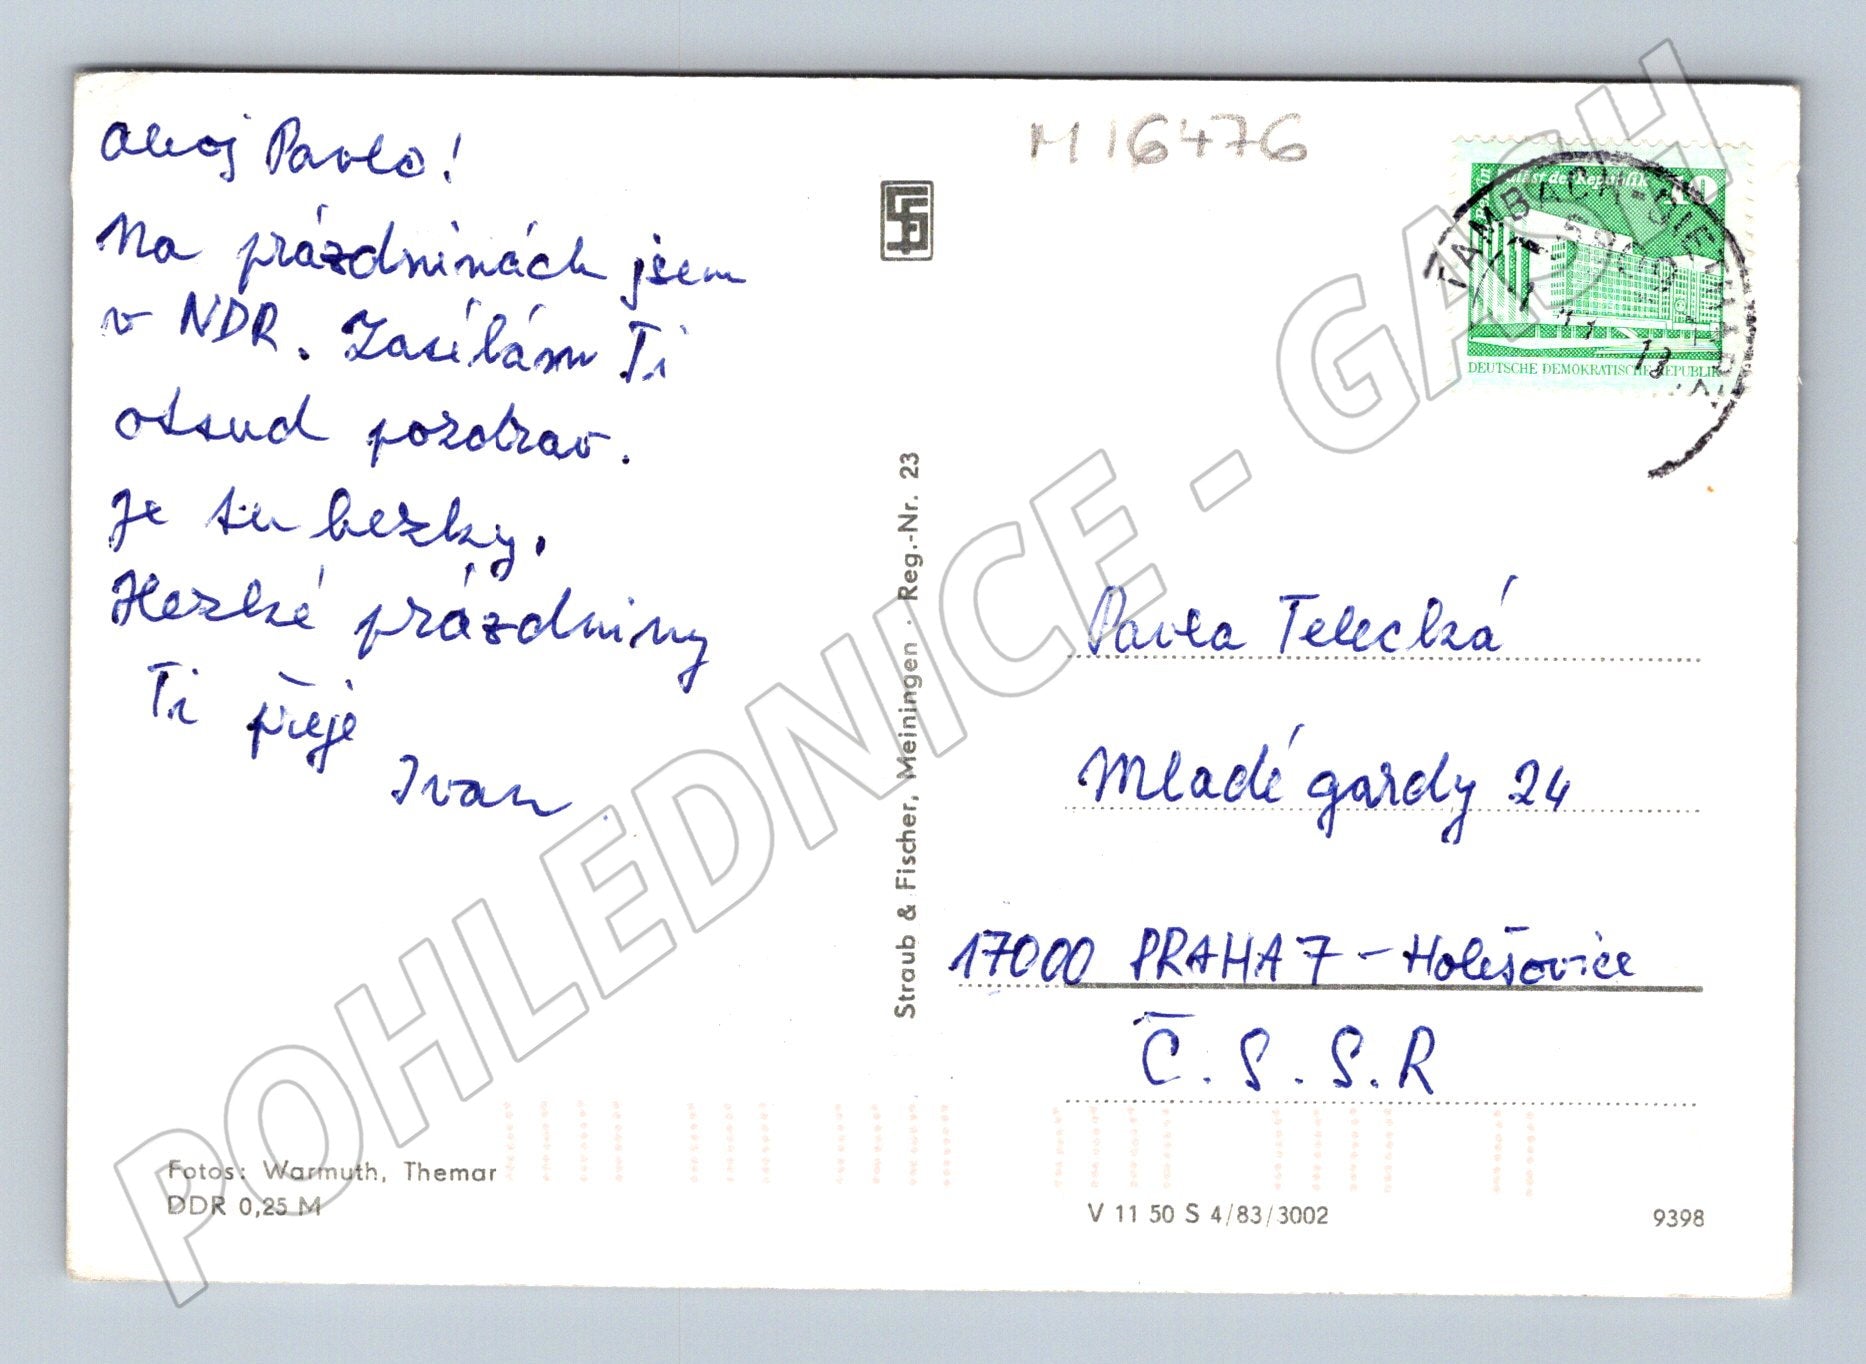 Ahoj Pavlo!
Na prázdninách jsem
v NDR. Zasílám Ti
odsud pozdrav.
Je tu hezky.
Hezké prázdniny
Ti přeje
Ivan
Fotos: Warmuth, Themar
DDR 0,25 M
Straub & Fischer, Meiningen · Reg.-Nr. 23
M 16476
Palast der Republik
10
DEUTSCHE DEMOKRATISCHE REPUBLIK
TAMBACH-DIETHARZ
Pavla Telecká
Mladé gardy 24
17000 PRAHA 7 - Holešovice
Č.S.S.R
V 11 50 S 4/83/3002
9398
POHLEDNICE - GASH